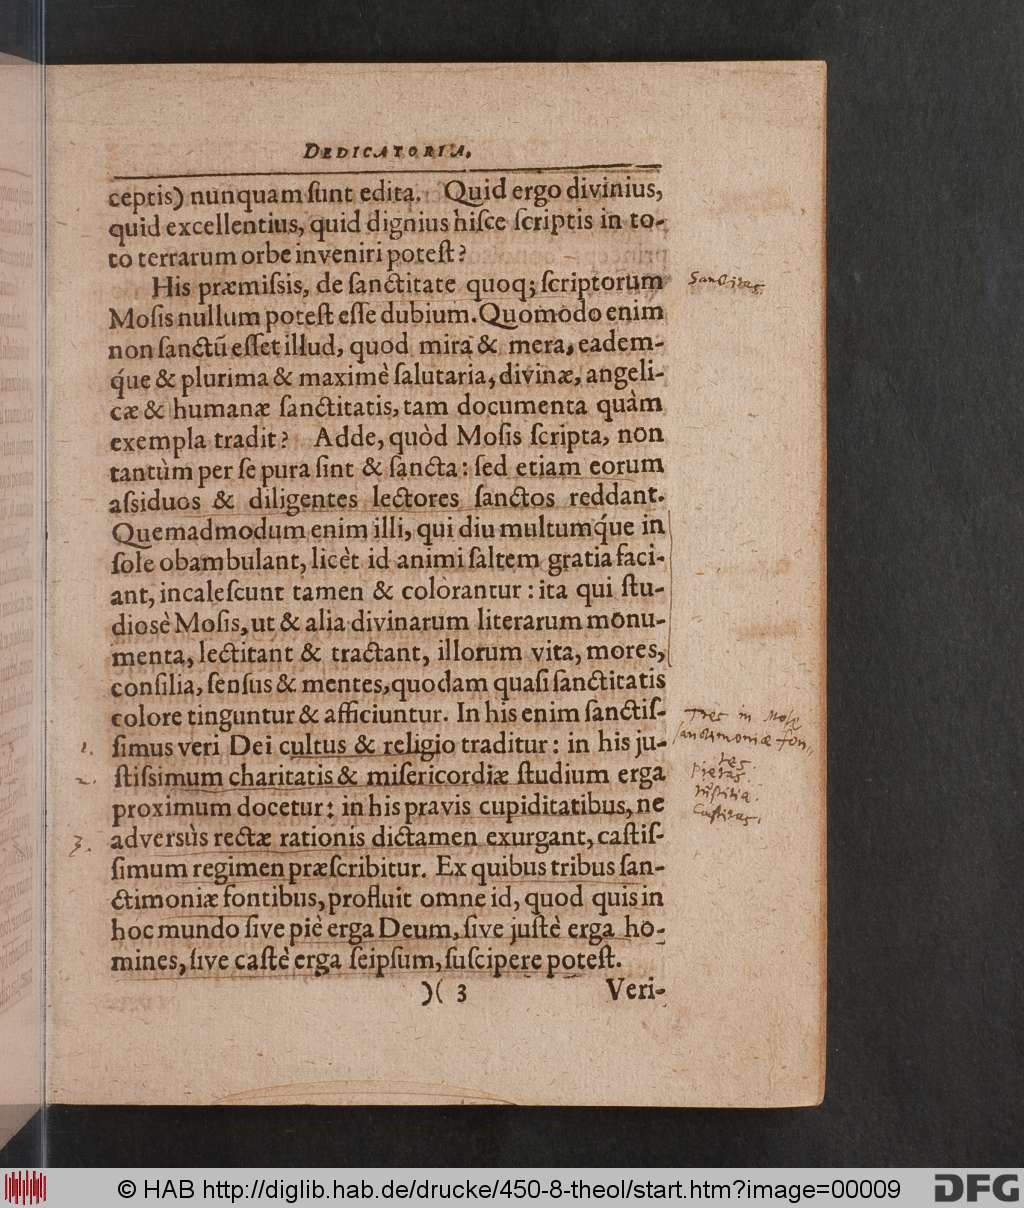 DEDICATORIA.
ceptis) nunquam ſunt edita. Quid ergo divinius,
quid excellentius, quid dignius hiſce ſcriptis in to-
to terrarum orbe inveniri poteſt?
His præmiſsis, de ſanctitate quoq; ſcriptorum
Sanctitas.
Moſis nullum poteſt eſſe dubium. Quomodo enim
non ſanctũ eſſet illud, quod mira & mera, eadem-
q́ue & plurima & maximè ſalutaria, divinæ, angeli-
cæ & humanæ ſanctitatis, tam documenta quàm
exempla tradit? Adde, quòd Moſis ſcripta, non
tantùm per ſe pura ſint & ſancta: ſed etiam eorum
aſsiduos & diligentes lectores ſanctos reddant.
Quemadmodum enim illi, qui diu multumq́ue in
ſole obambulant, licèt id animi ſaltem gratia faci-
ant, incaleſcunt tamen & colorantur: ita qui ſtu-
dioſè Moſis, ut & alia divinarum literarum monu-
menta, lectitant & tractant, illorum vita, mores,
conſilia, ſenſus & mentes, quodam quaſi ſanctitatis
colore tinguntur & afficiuntur. In his enim ſanctiſ-
Tres in Mose
1. ſimus veri Dei cultus & religio traditur: in his ju-
sanctimoniæ fon,,
tes
2. ſtiſsimum charitatis & miſericordiæ ſtudium erga
Pietas.
proximum docetur: in his pravis cupiditatibus, ne
Iustitia.
Castitas.
3. adversùs rectæ rationis dictamen exurgant, caſtiſ-
ſimum regimen præſcribitur. Ex quibus tribus ſan-
ctimoniæ fontibus, profluit omne id, quod quis in
hoc mundo ſive piè erga Deum, ſive juſtè erga ho-
mines, ſive caſtè erga ſeipſum, ſuſcipere poteſt.
)( 3 Veri-
© HAB http://diglib.hab.de/drucke/450-8-theol/start.htm?image=00009
DFG